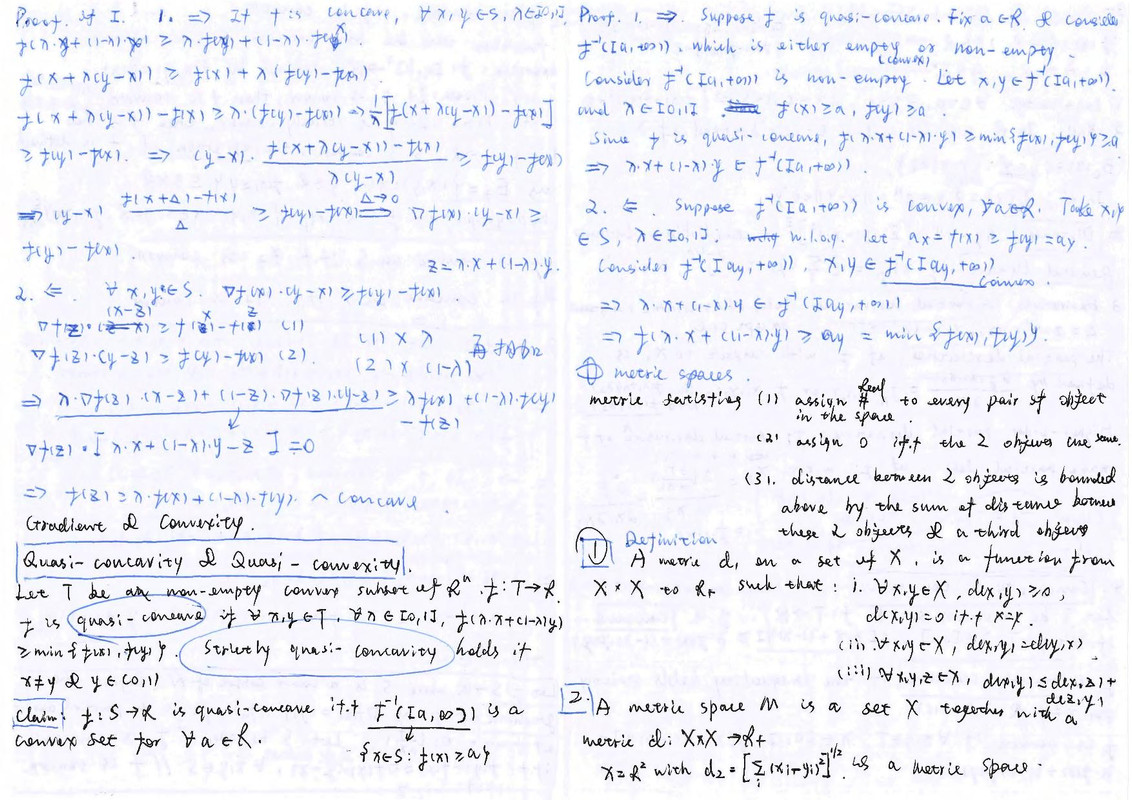 Proof of I. 1. => If f is concave, ∀ x, y ∈ S, λ ∈ [0,1],
f(λ·y + (1-λ)·x) ≥ λ·f(y) + (1-λ)·f(x)
f(x + λ(y-x)) ≥ f(x) + λ(f(y) - f(x))
f(x + λ(y-x)) - f(x) ≥ λ·(f(y) - f(x)) => 1/λ [f(x + λ(y-x)) - f(x)]
≥ f(y) - f(x). => (y-x)· f(x+λ(y-x)) - f(x) / λ(y-x) ≥ f(y) - f(x)
=> (y-x) f(x+Δ) - f(x) / Δ ≥ f(y) - f(x) =Δ→0=> ∇f(x)·(y-x) ≥
f(y) - f(x).
z = λ·x + (1-λ)·y.
2. <= ∀ x, y ∈ S. ∇f(x)·(y-x) ≥ f(y) - f(x)
∇f(z)·(x-z) ≥ f(x) - f(z) (1)
∇f(z)·(y-z) ≥ f(y) - f(z) (2).
(1) × λ
(2) × (1-λ)
=> λ·∇f(z)·(x-z) + (1-z)·∇f(z)·(y-z) ≥ λf(x) + (1-λ)·f(y)
- f(z)
∇f(z)·[λ·x + (1-λ)·y - z] = 0
=> f(z) ≥ λ·f(x) + (1-λ)·f(y). ^ concave
Gradient & Convexity.
Quasi-concavity & Quasi-convexity.
Let T be an non-empty convex subset of R^n. f: T→R.
f is quasi-concave if ∀ x, y ∈ T, ∀ λ ∈ [0,1], f(λ·x+(1-λ)y)
≥ min{f(x), f(y)}. Strictly quasi-concavity holds if
x≠y & y ∈ (0,1)
Claim: f: S→R is quasi-concave iff f^-1([a,∞]) is a
convex set for ∀ a ∈ R.
{x∈S: f(x) ≥ a}
Proof. 1. =>. Suppose f is quasi-concave. Fix a ∈ R & consider
f^-1([a,+∞)), which is either empty or non-empty
(convex)
Consider f^-1([a,+∞)) is non-empty. Let x, y ∈ f^-1([a,+∞)).
and λ ∈ [0,1] f(x) ≥ a, f(y) ≥ a.
Since f is quasi-concave, f(λ·x+(1-λ)·y) ≥ min{f(x), f(y)} ≥ a
=> λ·x + (1-λ)·y ∈ f^-1([a,+∞)).
2. <=. Suppose f^-1([a,+∞)) is convex, ∀a∈R. Take x, y
∈ S, λ ∈ [0,1]. w.l.o.g. let ax = f(x) ≥ f(y) = ay.
Consider f^-1([ay,+∞)), x, y ∈ f^-1([ay,+∞))
convex.
=> λ·x + (1-λ)y ∈ f^-1([ay,+∞))
=> f(λ·x + (1-λ)y) ≥ ay = min{f(x), f(y)}.
metric spaces.
metric satisfing (1) assign Real # to every pair of object
in the space
(2) assign 0 iff the 2 objects are same.
(3). distance between 2 objects is bounded
above by the sum of distance between
these 2 objects & a third object
① Definition
A metric d, on a set of X, is a function from
X × X to R+ such that: i. ∀x,y∈X, d(x,y) ≥ 0,
d(x,y) = 0 iff x=y.
(ii) ∀x,y∈X, d(x,y) = d(y,x)
(iii) ∀x,y,z∈X, d(x,y) ≤ d(x,z) +
d(z,y)
2. A metric space M is a set X together with a
metric d: X×X → R+
X = R² with d₂ = [Σi (xi - yi)²]^1/2. is a metric space.